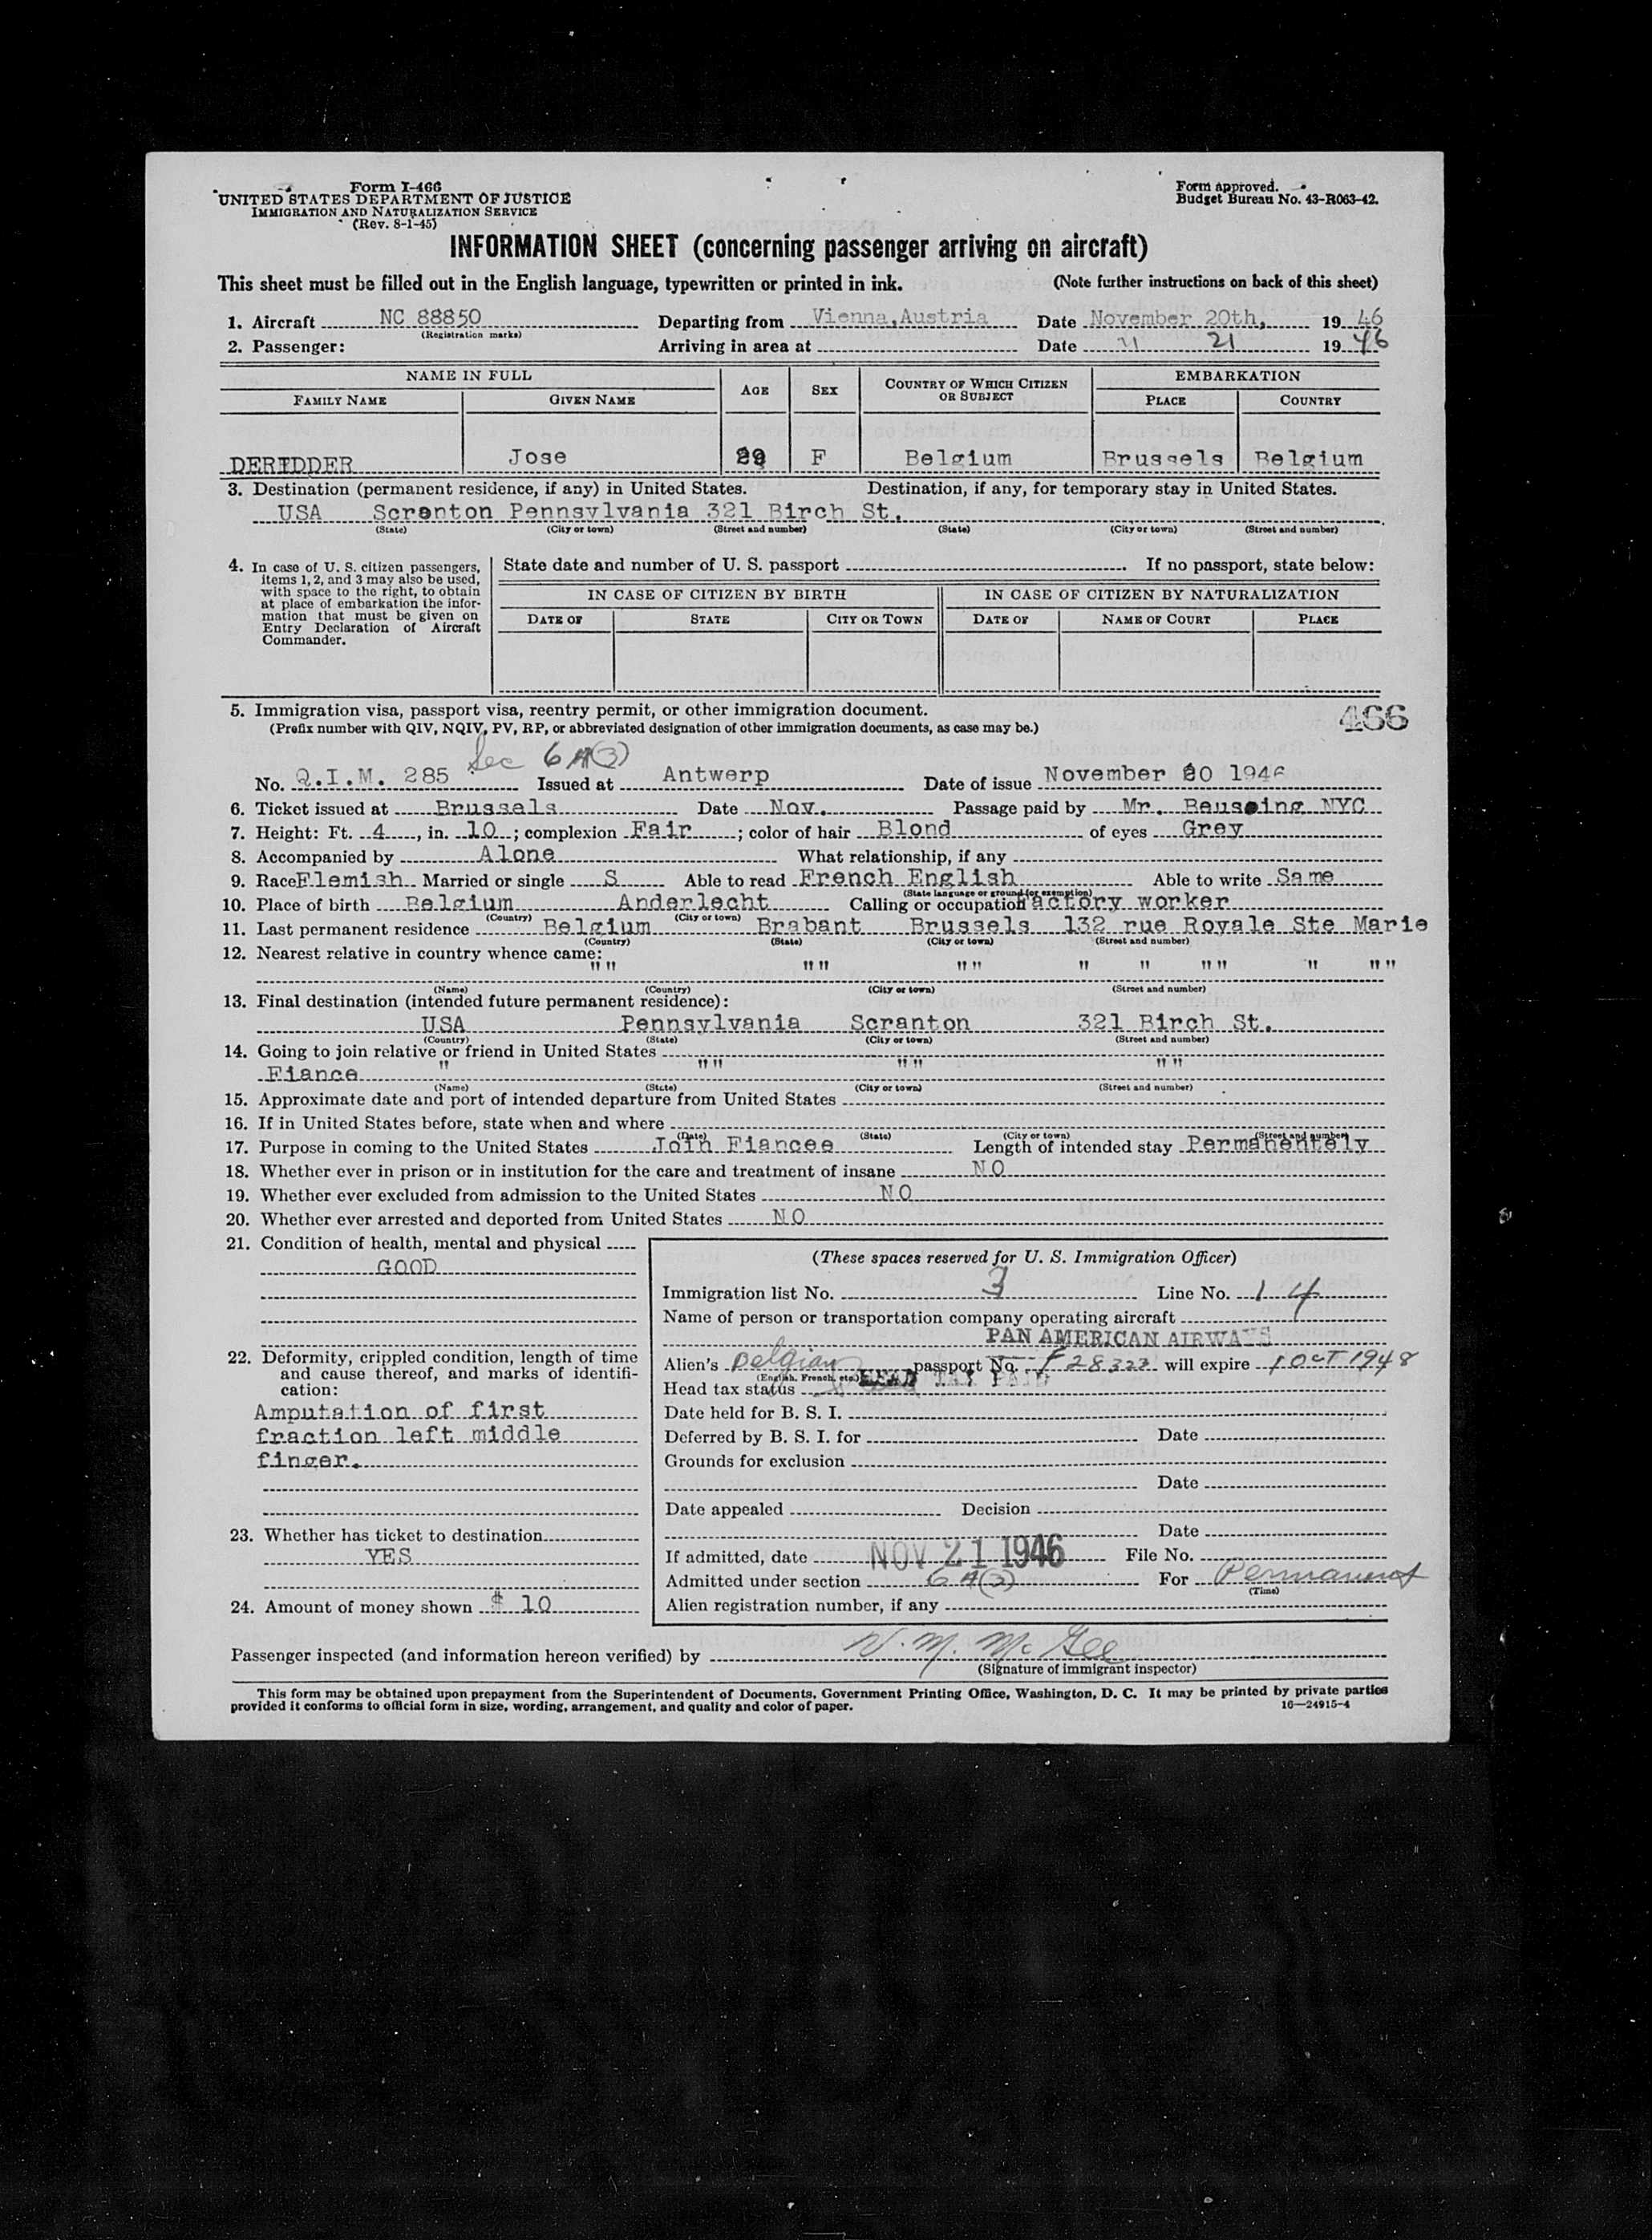 Form I-466
UNITED STATES DEPARTMENT OF JUSTICE
IMMIGRATION AND NATURALIZATION SERVICE
(Rev. 8-1-45)
Form approved.
Budget Bureau No. 43-R063-42.
INFORMATION SHEET (concerning passenger arriving on aircraft)
This sheet must be filled out in the English language, typewritten or printed in ink. (Note further instructions on back of this sheet)
1. Aircraft NC 88850 Departing from Vienna,Austria Date November 20th, 19 46
(Registration marks)
2. Passenger: Arriving in area at Date 11 21 19 46
NAME IN FULL AGE SEX COUNTRY OF WHICH CITIZEN OR SUBJECT EMBARKATION
FAMILY NAME GIVEN NAME PLACE COUNTRY
DERIDDER Jose F Belgium Brussels Belgium
3. Destination (permanent residence, if any) in United States. Destination, if any, for temporary stay in United States.
USA Scranton Pennsylvania 321 Birch St.
(State) (City or town) (Street and number) (State) (City or town) (Street and number)
4. In case of U. S. citizen passengers, items 1, 2, and 3 may also be used, with space to the right, to obtain at place of embarkation the information that must be given on Entry Declaration of Aircraft Commander.
State date and number of U. S. passport If no passport, state below:
IN CASE OF CITIZEN BY BIRTH IN CASE OF CITIZEN BY NATURALIZATION
DATE OF STATE CITY OR TOWN DATE OF NAME OF COURT PLACE
5. Immigration visa, passport visa, reentry permit, or other immigration document.
(Prefix number with QIV, NQIV, PV, RP, or abbreviated designation of other immigration documents, as case may be.)
466
Sec 6 A(3)
No. Q.I.M. 285 Issued at Antwerp Date of issue November 20 1946
6. Ticket issued at Brussels Date Nov. Passage paid by Mr. Beuseing NYC
7. Height: Ft. 4, in. 10; complexion Fair; color of hair Blond of eyes Grey
8. Accompanied by Alone What relationship, if any
9. Race Flemish Married or single S Able to read French English Able to write Same
(State language or ground for exemption)
10. Place of birth Belgium Anderlecht Calling or occupation factory worker
(Country) (City or town)
11. Last permanent residence Belgium Brabant Brussels 132 rue Royale Ste Marie
(Country) (State) (City or town) (Street and number)
12. Nearest relative in country whence came:
"" "" "" " " "" " ""
(Name) (Country) (City or town) (Street and number)
13. Final destination (intended future permanent residence):
USA Pennsylvania Scranton 321 Birch St.
(Country) (State) (City or town) (Street and number)
14. Going to join relative or friend in United States
Fiance " "" "" ""
(Name) (State) (City or town) (Street and number)
15. Approximate date and port of intended departure from United States
16. If in United States before, state when and where
(Date) (State) (City or town) (Street and number)
17. Purpose in coming to the United States Join Fiancee Length of intended stay Permanentely
18. Whether ever in prison or in institution for the care and treatment of insane NO
19. Whether ever excluded from admission to the United States NO
20. Whether ever arrested and deported from United States NO
21. Condition of health, mental and physical
GOOD
22. Deformity, crippled condition, length of time and cause thereof, and marks of identification:
Amputation of first
fraction left middle
finger.
23. Whether has ticket to destination
YES
24. Amount of money shown $ 10
(These spaces reserved for U. S. Immigration Officer)
Immigration list No. 3 Line No. 14
Name of person or transportation company operating aircraft
PAN AMERICAN AIRWAYS
Alien's Belgian passport No. F 28323 will expire 1 OCT 1948
(English, French, etc.)
Head tax status HEAD TAX PAID
Date held for B. S. I.
Deferred by B. S. I. for Date
Grounds for exclusion
Date
Date appealed Decision
Date
If admitted, date NOV 21 1946 File No.
Admitted under section 6 A(3) For Permanent
(Time)
Alien registration number, if any
Passenger inspected (and information hereon verified) by W. M. McGee
(Signature of immigrant inspector)
This form may be obtained upon prepayment from the Superintendent of Documents, Government Printing Office, Washington, D. C. It may be printed by private parties
provided it conforms to official form in size, wording, arrangement, and quality and color of paper. 16—24915-4